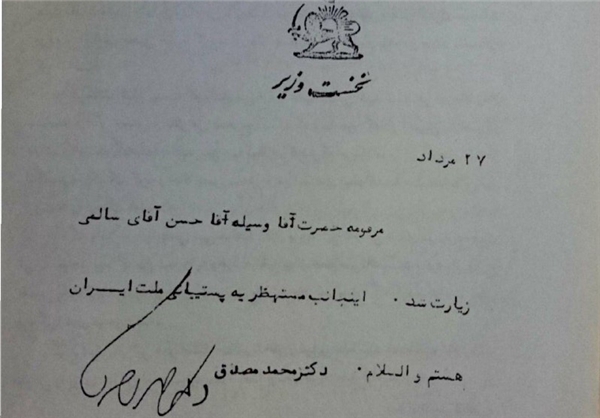 نخست وزیر
۲۷ مرداد
مرقومه حضرت آقا وسیله آقا حسن آقای سالمی
زیارت شد . اینجانب مستظهر به پستیبانی ملت ایران
هستم والسلام . دکتر محمد مصدق
دکتر محمد مصدق